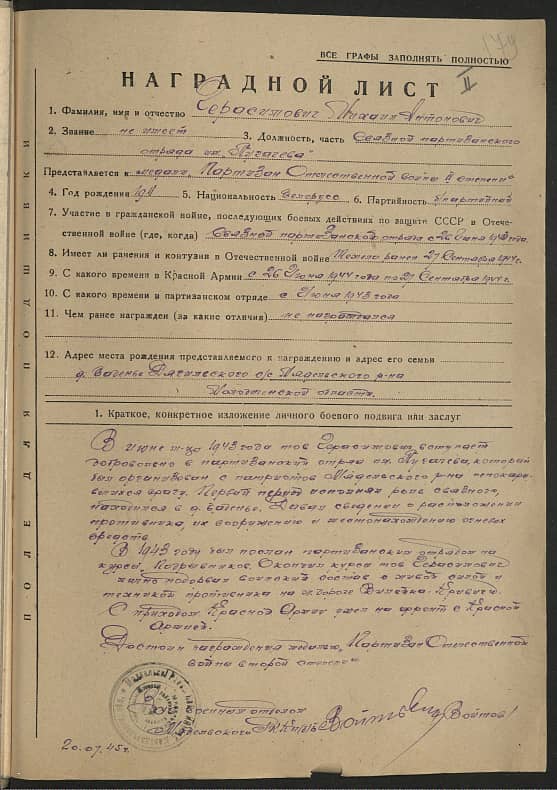 179
ВСЕ ГРАФЫ ЗАПОЛНЯТЬ ПОЛНОСТЬЮ
НАГРАДНОЙ ЛИСТ II
1. Фамилия, имя и отчество Герасимович Михаил Антонович
2. Звание не имеет 3. Должность, часть Связной партизанского
отряда им. "Пугачева"
Представляется к медали „Партизан Отечественной войны II степени"
4. Год рождения 5. Национальность белорус 6. Партийность б/партийный
7. Участие в гражданской войне, последующих боевых действиях по защите СССР в Отече-
ственной войне (где, когда) Связной партизанского отряда с 26 июня 1943 года.
8. Имеет ли ранения и контузии в Отечественной войне Тяжело ранен 27 Сентября 1944 г.
9. С какого времени в Красной Армии с 26 Июня 1944 года по 27 Сентября 1944 г.
10. С какого времени в партизанском отряде с Июня 1943 года
11. Чем ранее награжден (за какие отличия) не награждался
12. Адрес места рождения представляемого к награждению и адрес его семьи
д. с/с Мядельского р-на
области.
1. Краткое, конкретное изложение личного боевого подвига или заслуг
В июне м-це 1943 года тов Герасимович вступает
добровольно в партизанский отряд им. Пугачева, который
был организован с патриотов Мядельского р-на непокори-
вшихся врагу. Первый период исполнял роль связного,
находился в д. Давал сведения о расположении
противника, их вооружению и местонахождению огневых
средств.
В 1943 году был послан партизанским отрядом на
курсы Подрывников. Окончил курсы тов Герасимович
лично подорвал воинский состав с живой силой и
техникой противника на ж/дороге Вилейка-Кривичи.
С приходом Красной Армии ушел на фронт с Красной
Армией.
Достоин награждения медалью „Партизан Отечественной
войны второй степени"
Военным отделом
Мядельского РК КП(б)Б Войтов
20.07.45г.
ПОЛЕ ДЛЯ ПОДШИВКИ